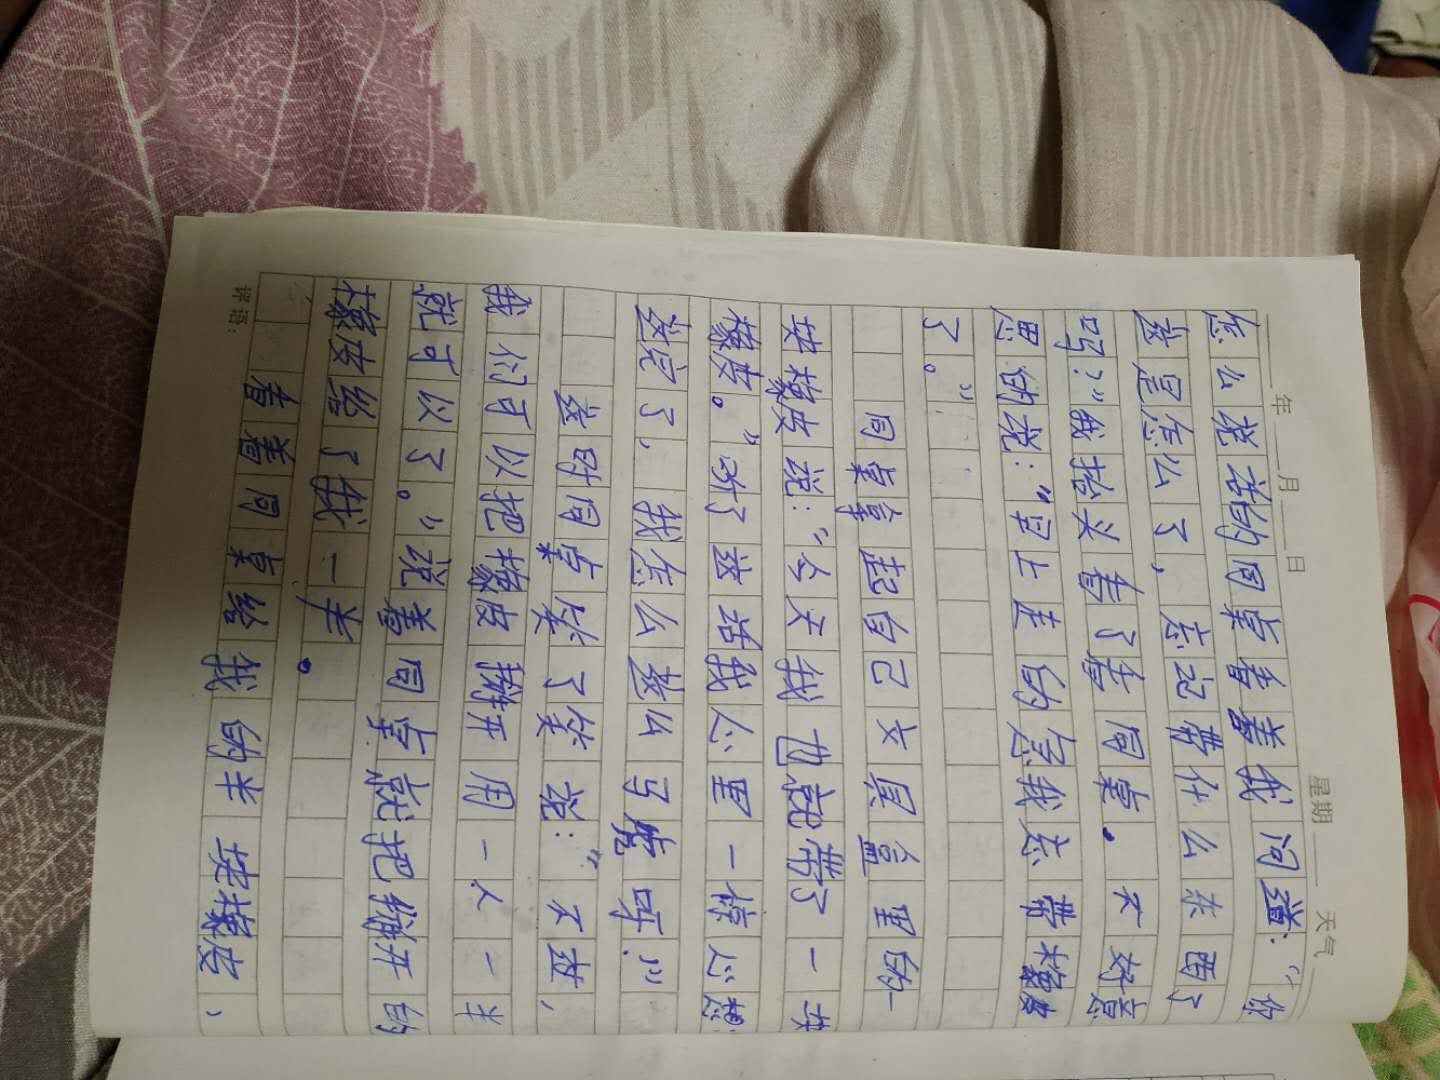 年 月 日 星期 天气
怎么说话的同桌看着我问道:“你
这是怎么了,忘记带什么东西了
吗?”我抬头看了看同桌。不好意
思的说:“早上走的急我忘带橡皮
了。”
同桌拿起自己文具盒里的一
块橡皮说:“今天我也就带了一块
橡皮。”听了这话我心里一惊心想:
这完了,我怎么这么马虎呀!”
这时同桌笑了笑说:“不过,
我们可以把橡皮掰开用一人一半
就可以了。”说着同桌就把掰开的
橡皮给了我一半。
看着同桌给我的半块橡皮、
评语: